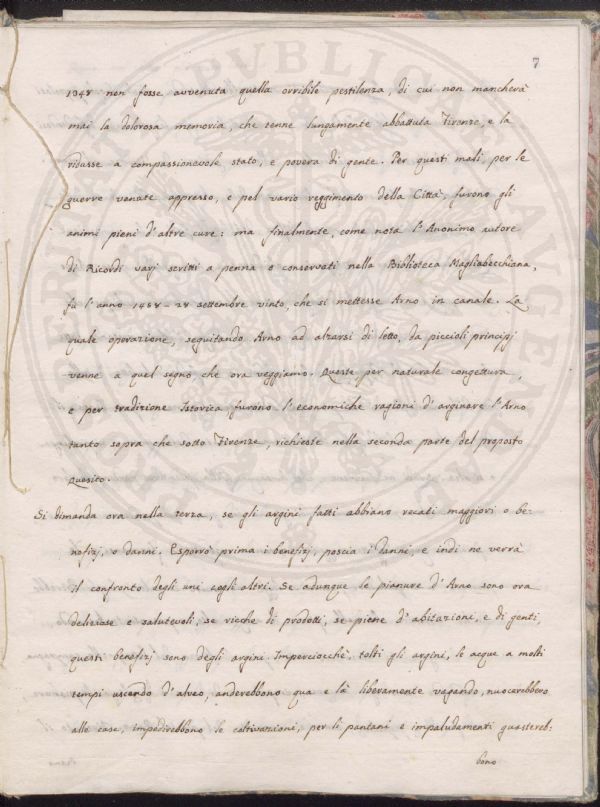 7
1348 non fosse avvenuta quella orribile pestilenza, di cui non mancherà
mai la dolorosa memoria, che tenne lungamente abbattuta Firenze, e la
ridusse a compassionevole stato, e povera di gente. Per questi mali, per le
guerre venute appresso, e pel vario reggimento della Città, furono gli
animi pieni d'altre cure: ma finalmente, come nota l'Anonimo autore
di Ricordi varj scritti a penna e conservati nella Biblioteca Magliabecchiana,
fù l'anno 1458 - 28 settembre vinto, che si mettesse Arno in canale. La
quale operazione, seguitando Arno ad alzarsi di letto, da piccioli principj
venne a quel segno che ora veggiamo. Queste per naturale congettura,
e per tradizione Istorica furono l'economiche ragioni d'arginare l'Arno
tanto sopra che sotto Firenze, richieste nella seconda parte del proposto
Quesito.
Si dimanda ora nella terza, se gli argini fatti abbiano recati maggiori o be-
nefizj, o danni. Esporrò prima i benefizj, poscia i danni, e indi ne verrà
il confronto degli uni cogli altri. Se adunque le pianure d'Arno sono ora
deliziose e salutevoli, se ricche di prodotti, se piene d'abitazioni, e di genti,
questi benefizj sono degli argini. Imperciocchè, tolti gli argini, le acque a molti
tempi uscendo d'alveo, anderebbono qua e là liberamente vagando, nuocerebbero
alle case, impedirebbono le coltivazioni, per li pantani e impaludamenti guastereb:
bono
PROSPERITATI PVBLICAE AVGENDAE